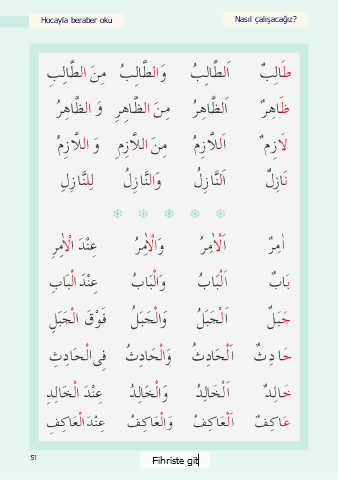 Hocayla beraber oku
Nasıl çalışacağız?
طَالِبٌ اَلطَّالِبُ وَالطَّالِبُ مِنَ الطَّالِبِ
ظَاهِرٌ اَلظَّاهِرُ مِنَ الظَّاهِرِ وَ الظَّاهِرُ
لَازِمٌ اَللَّازِمُ مِنَ اللَّازِمِ وَ اللَّازِمُ
نَازِلٌ اَلنَّازِلُ وَالنَّازِلُ لِلنَّازِلِ
اٰمِرٌ اَلْاٰمِرُ وَالْاٰمِرُ عِنْدَ الْاٰمِرِ
بَابٌ اَلْبَابُ وَالْبَابُ عِنْدَ الْبَابِ
جَبَلٌ اَلْجَبَلُ وَالْجَبَلُ فَوْقَ الْجَبَلِ
حَادِثٌ اَلْحَادِثُ وَالْحَادِثُ فِى الْحَادِثِ
خَالِدٌ اَلْخَالِدُ وَالْخَالِدُ عِنْدَ الْخَالِدِ
عَاكِفٌ اَلْعَاكِفُ وَالْعَاكِفُ عِنْدَ الْعَاكِفِ
51
Fihriste git